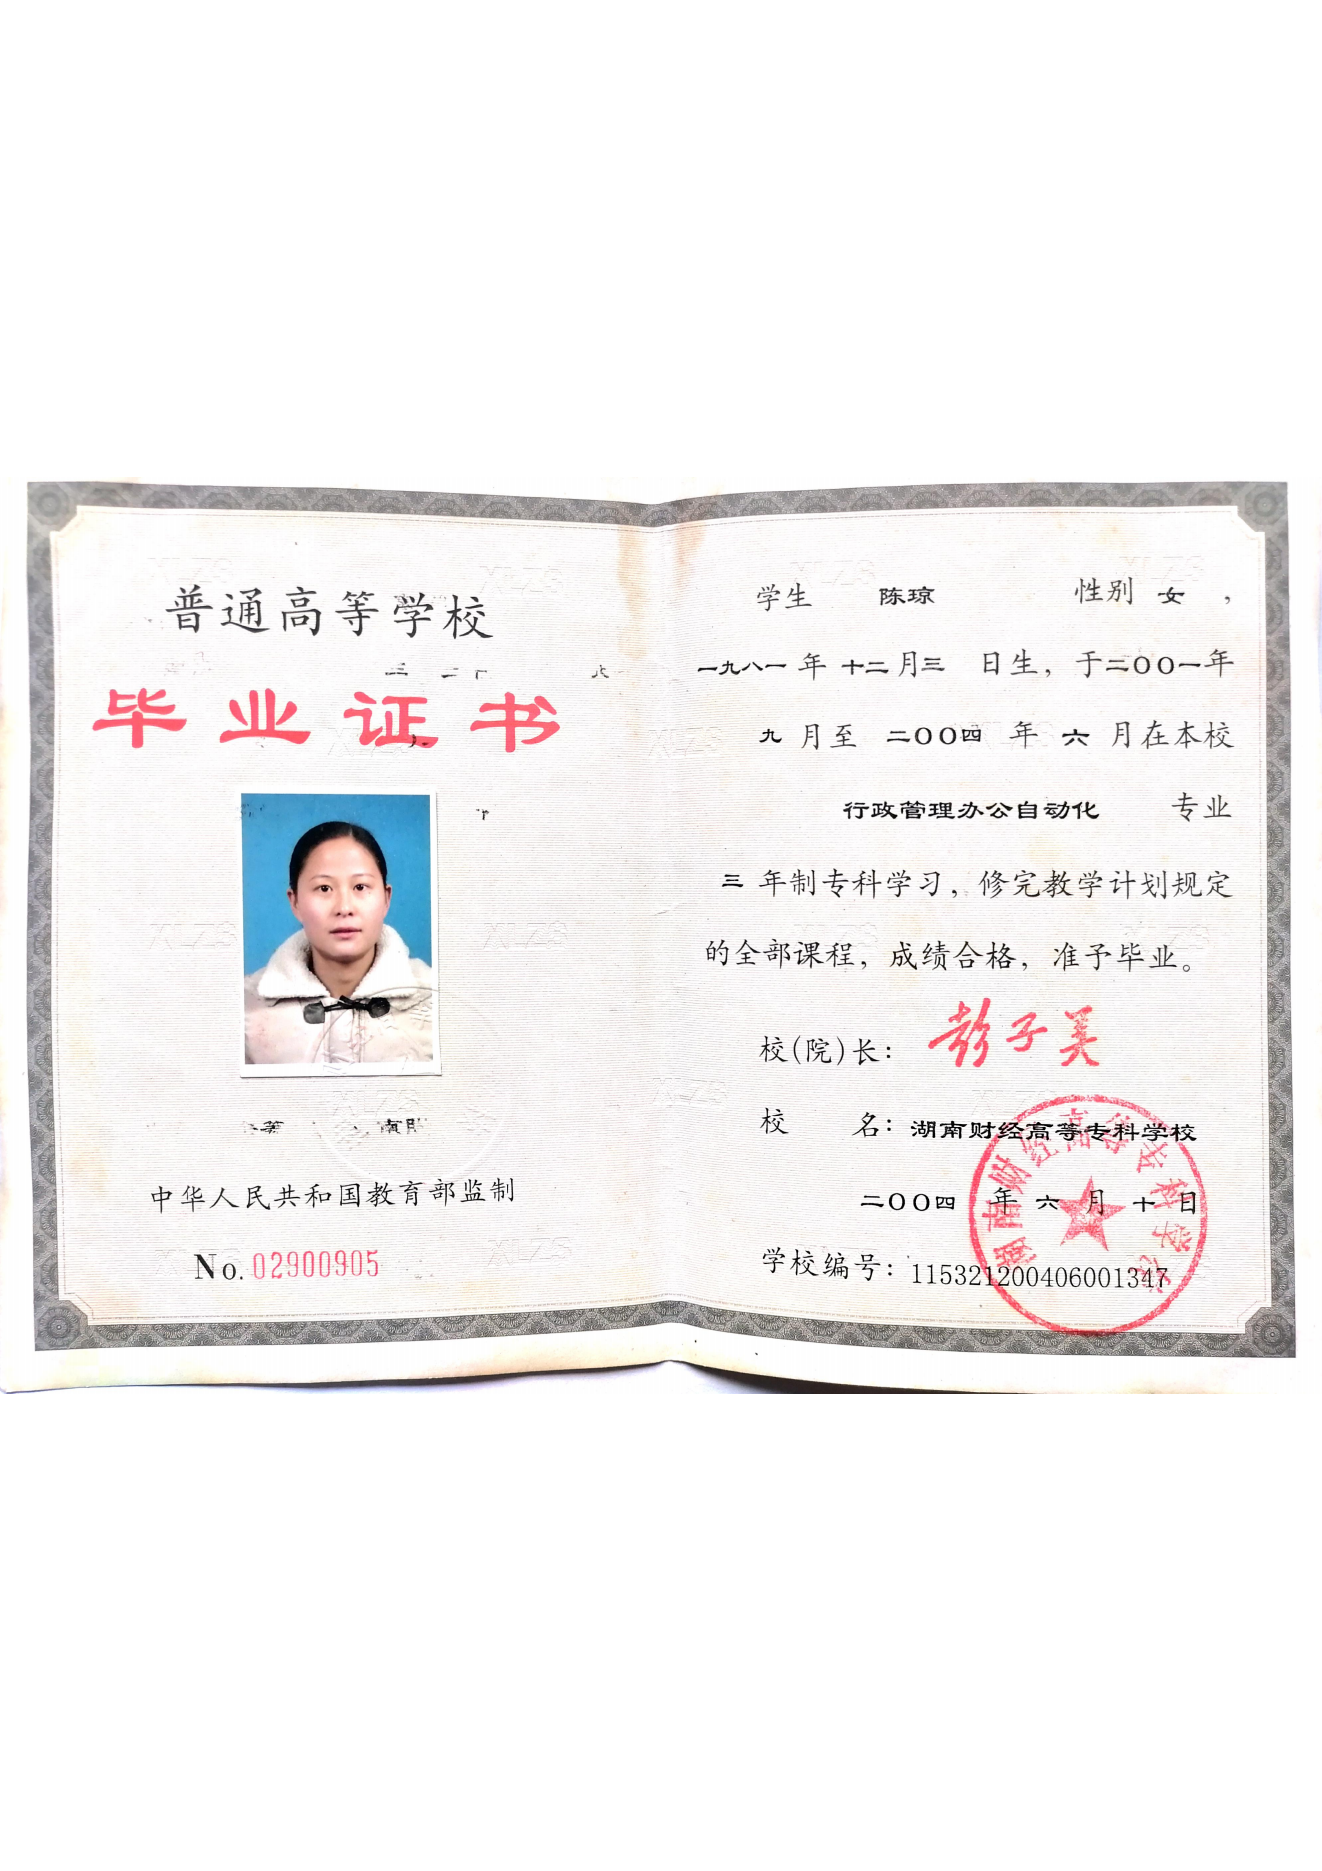 普通高等学校
毕业证书
中华人民共和国教育部监制
No. 02900905
学生 陈琼 性别 女 ，
一九八一 年 十二 月 三 日生，于二〇〇一年
九 月至 二〇〇四 年 六 月在本校
行政管理办公自动化 专业
三 年制专科学习，修完教学计划规定
的全部课程，成绩合格，准予毕业。
校(院)长： 彭子美
校 名：湖南财经高等专科学校
二〇〇四 年 六 月 十 日
学校编号：115321200406001347
湖南财经高等专科学校
XLZS